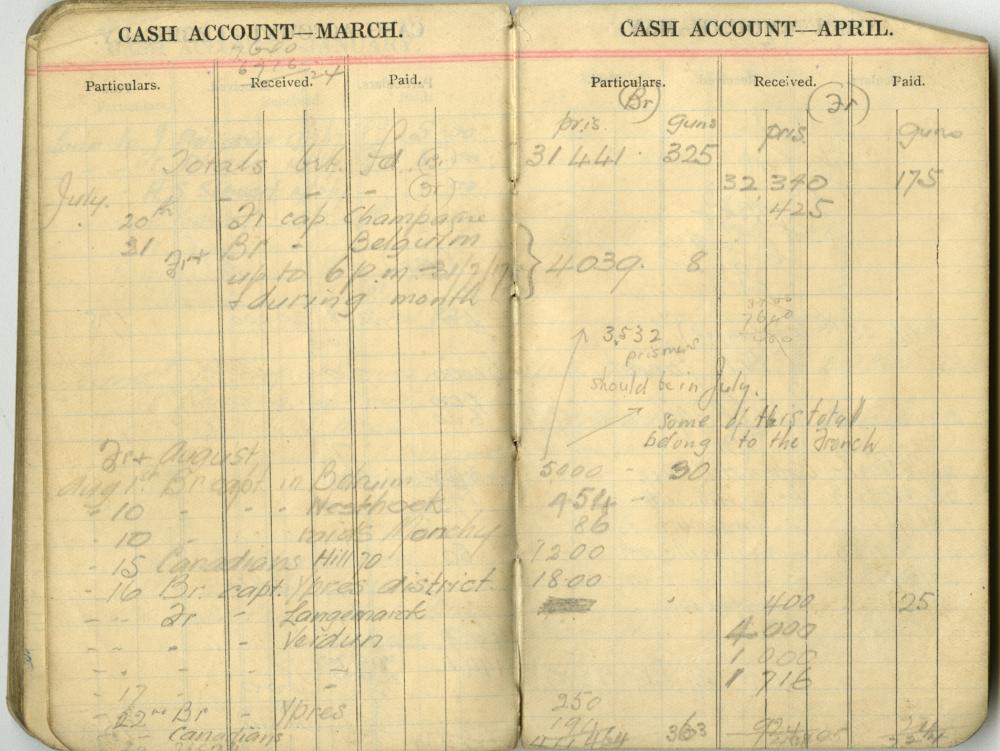 CASH ACCOUNT—MARCH.
Particulars. Received. Paid.
Totals brt. fd. (Br)
July. " - - (Fr)
20th Fr cap Champagne
31 Fr+ Br " Belguim
up to 6 p.m. 31/7/17
+ during month
Fr+ August
Aug 1st Br capt in Belguim
- 10 - - - Westhoek
- 10 - raids Monchy
- 15 Canadians Hill 70
- 16 Br. capt. Ypres district.
- - - Fr - Langemarck
- - - - Verdun
- - - -
- 17 - -
- 22nd Br - Ypres
Canadians
CASH ACCOUNT—APRIL.
Particulars. Received. Paid.
(Br) (Fr)
pris. guns pris. guns
31441 325
32 340 175
425
4039. 8
3,532
prisoners
should be in July.
some of this total
belong to the French
5000 - 30
454 -
86
1200
1800
400 25
4 000
1 000
1 716
250
194
363